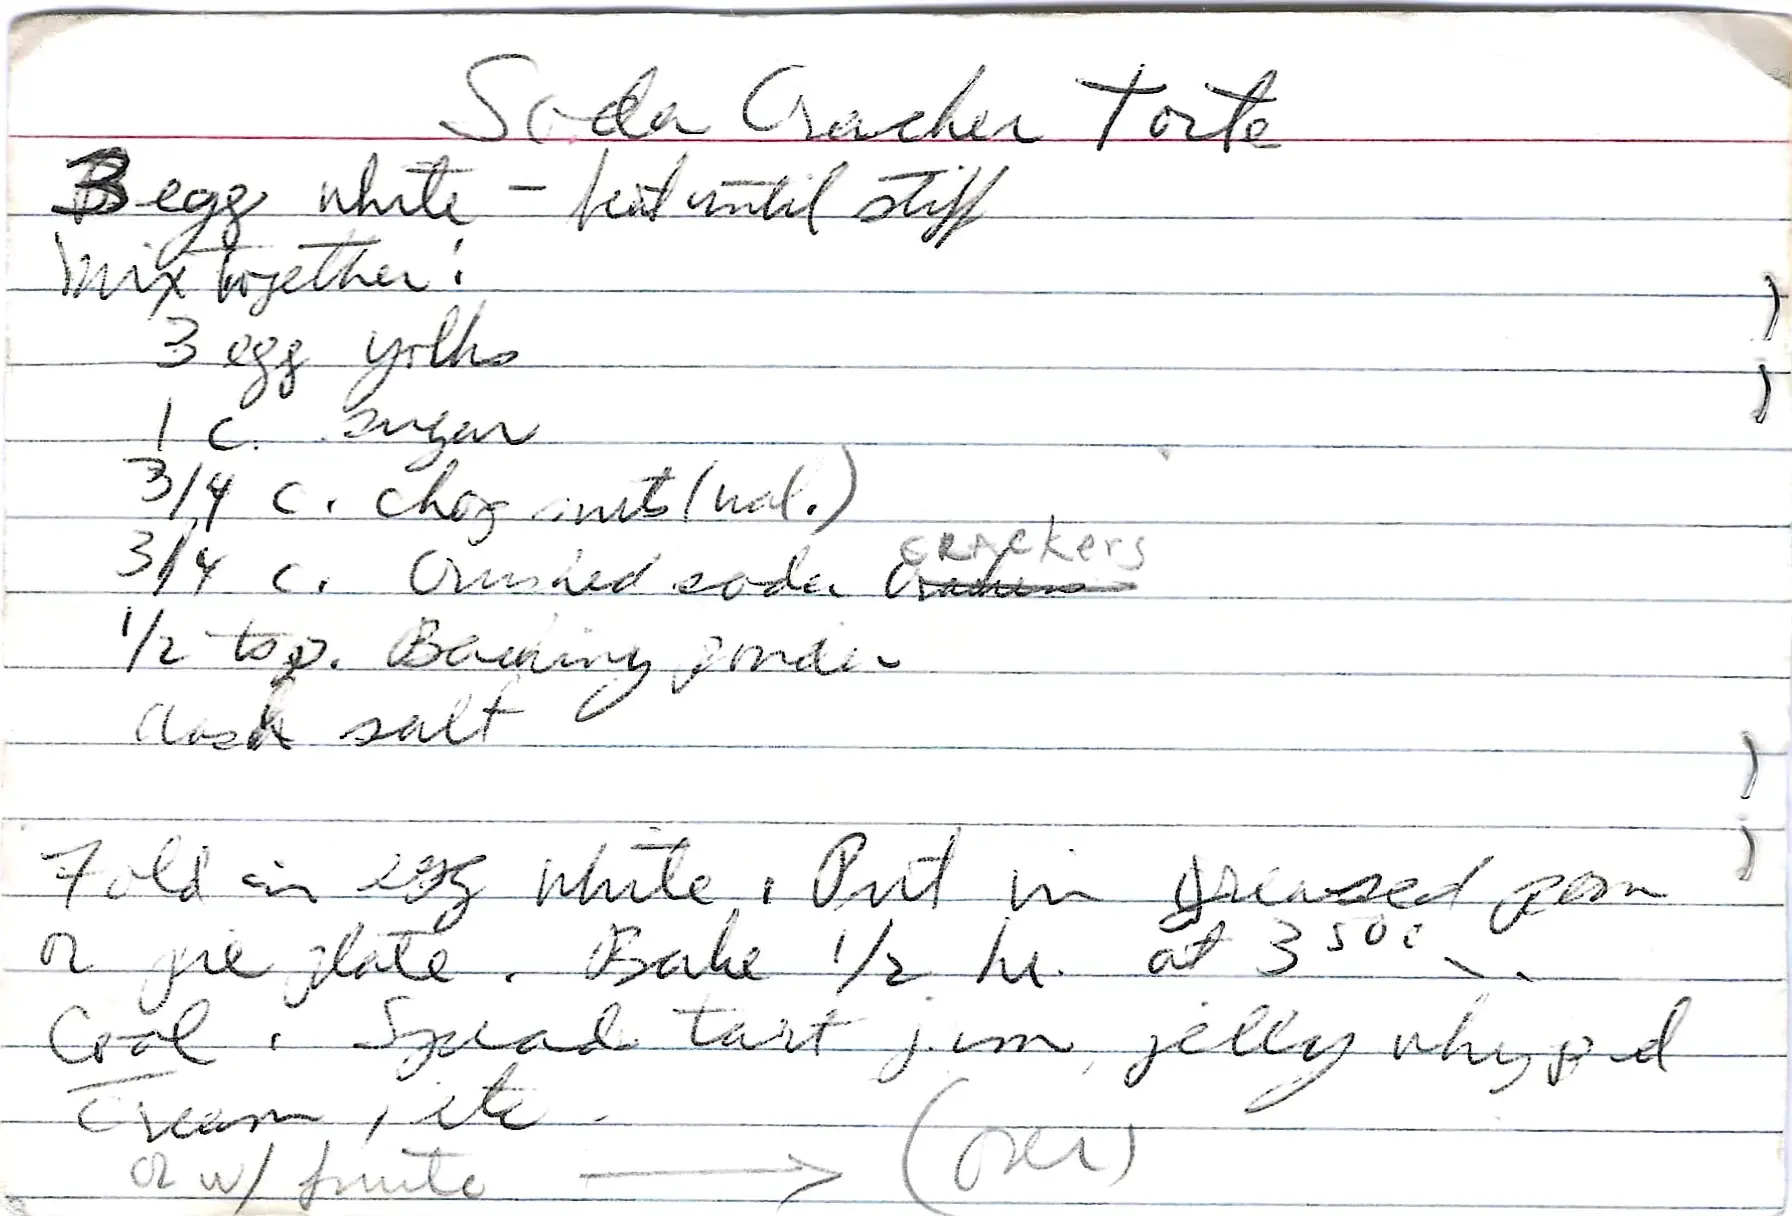 Soda Cracker Torte
3 egg white - beat until stiff
Mix together:
3 egg yolks
1 c. sugar
3/4 c. chop nuts (wal.)
crackers
3/4 c. Crushed soda Crackers
1/2 tsp. Backing powder
dash salt
Fold in egg white. Put in greased pan
or pie plate. Bake 1/2 hr. at 350°
Cool. Spread tart jam, jelly whipped
cream, etc.
or w/ fruite → (over)